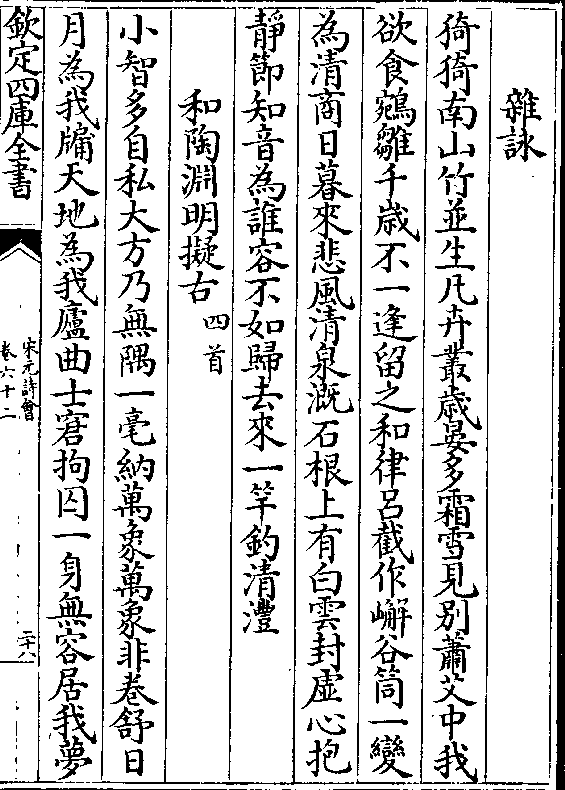 雜詠
猗猗南山竹並生凡卉叢歳晏多霜雪見别蕭艾中我
欲食鵷雛千歳不一逢留之和律呂截作嶰谷筒一變
為清商日暮來悲風清泉溉石根上有白雲封虚心抱
靜節知音為誰容不如歸去來一竿釣清灃
和陶淵明擬古四首
小智多自私大方乃無隅一毫納萬象萬象非巻舒日
月為我牖天地為我廬曲士窘拘囚一身無容居我夢
欽定四庫全書
宋元詩會
卷六十二
二十八